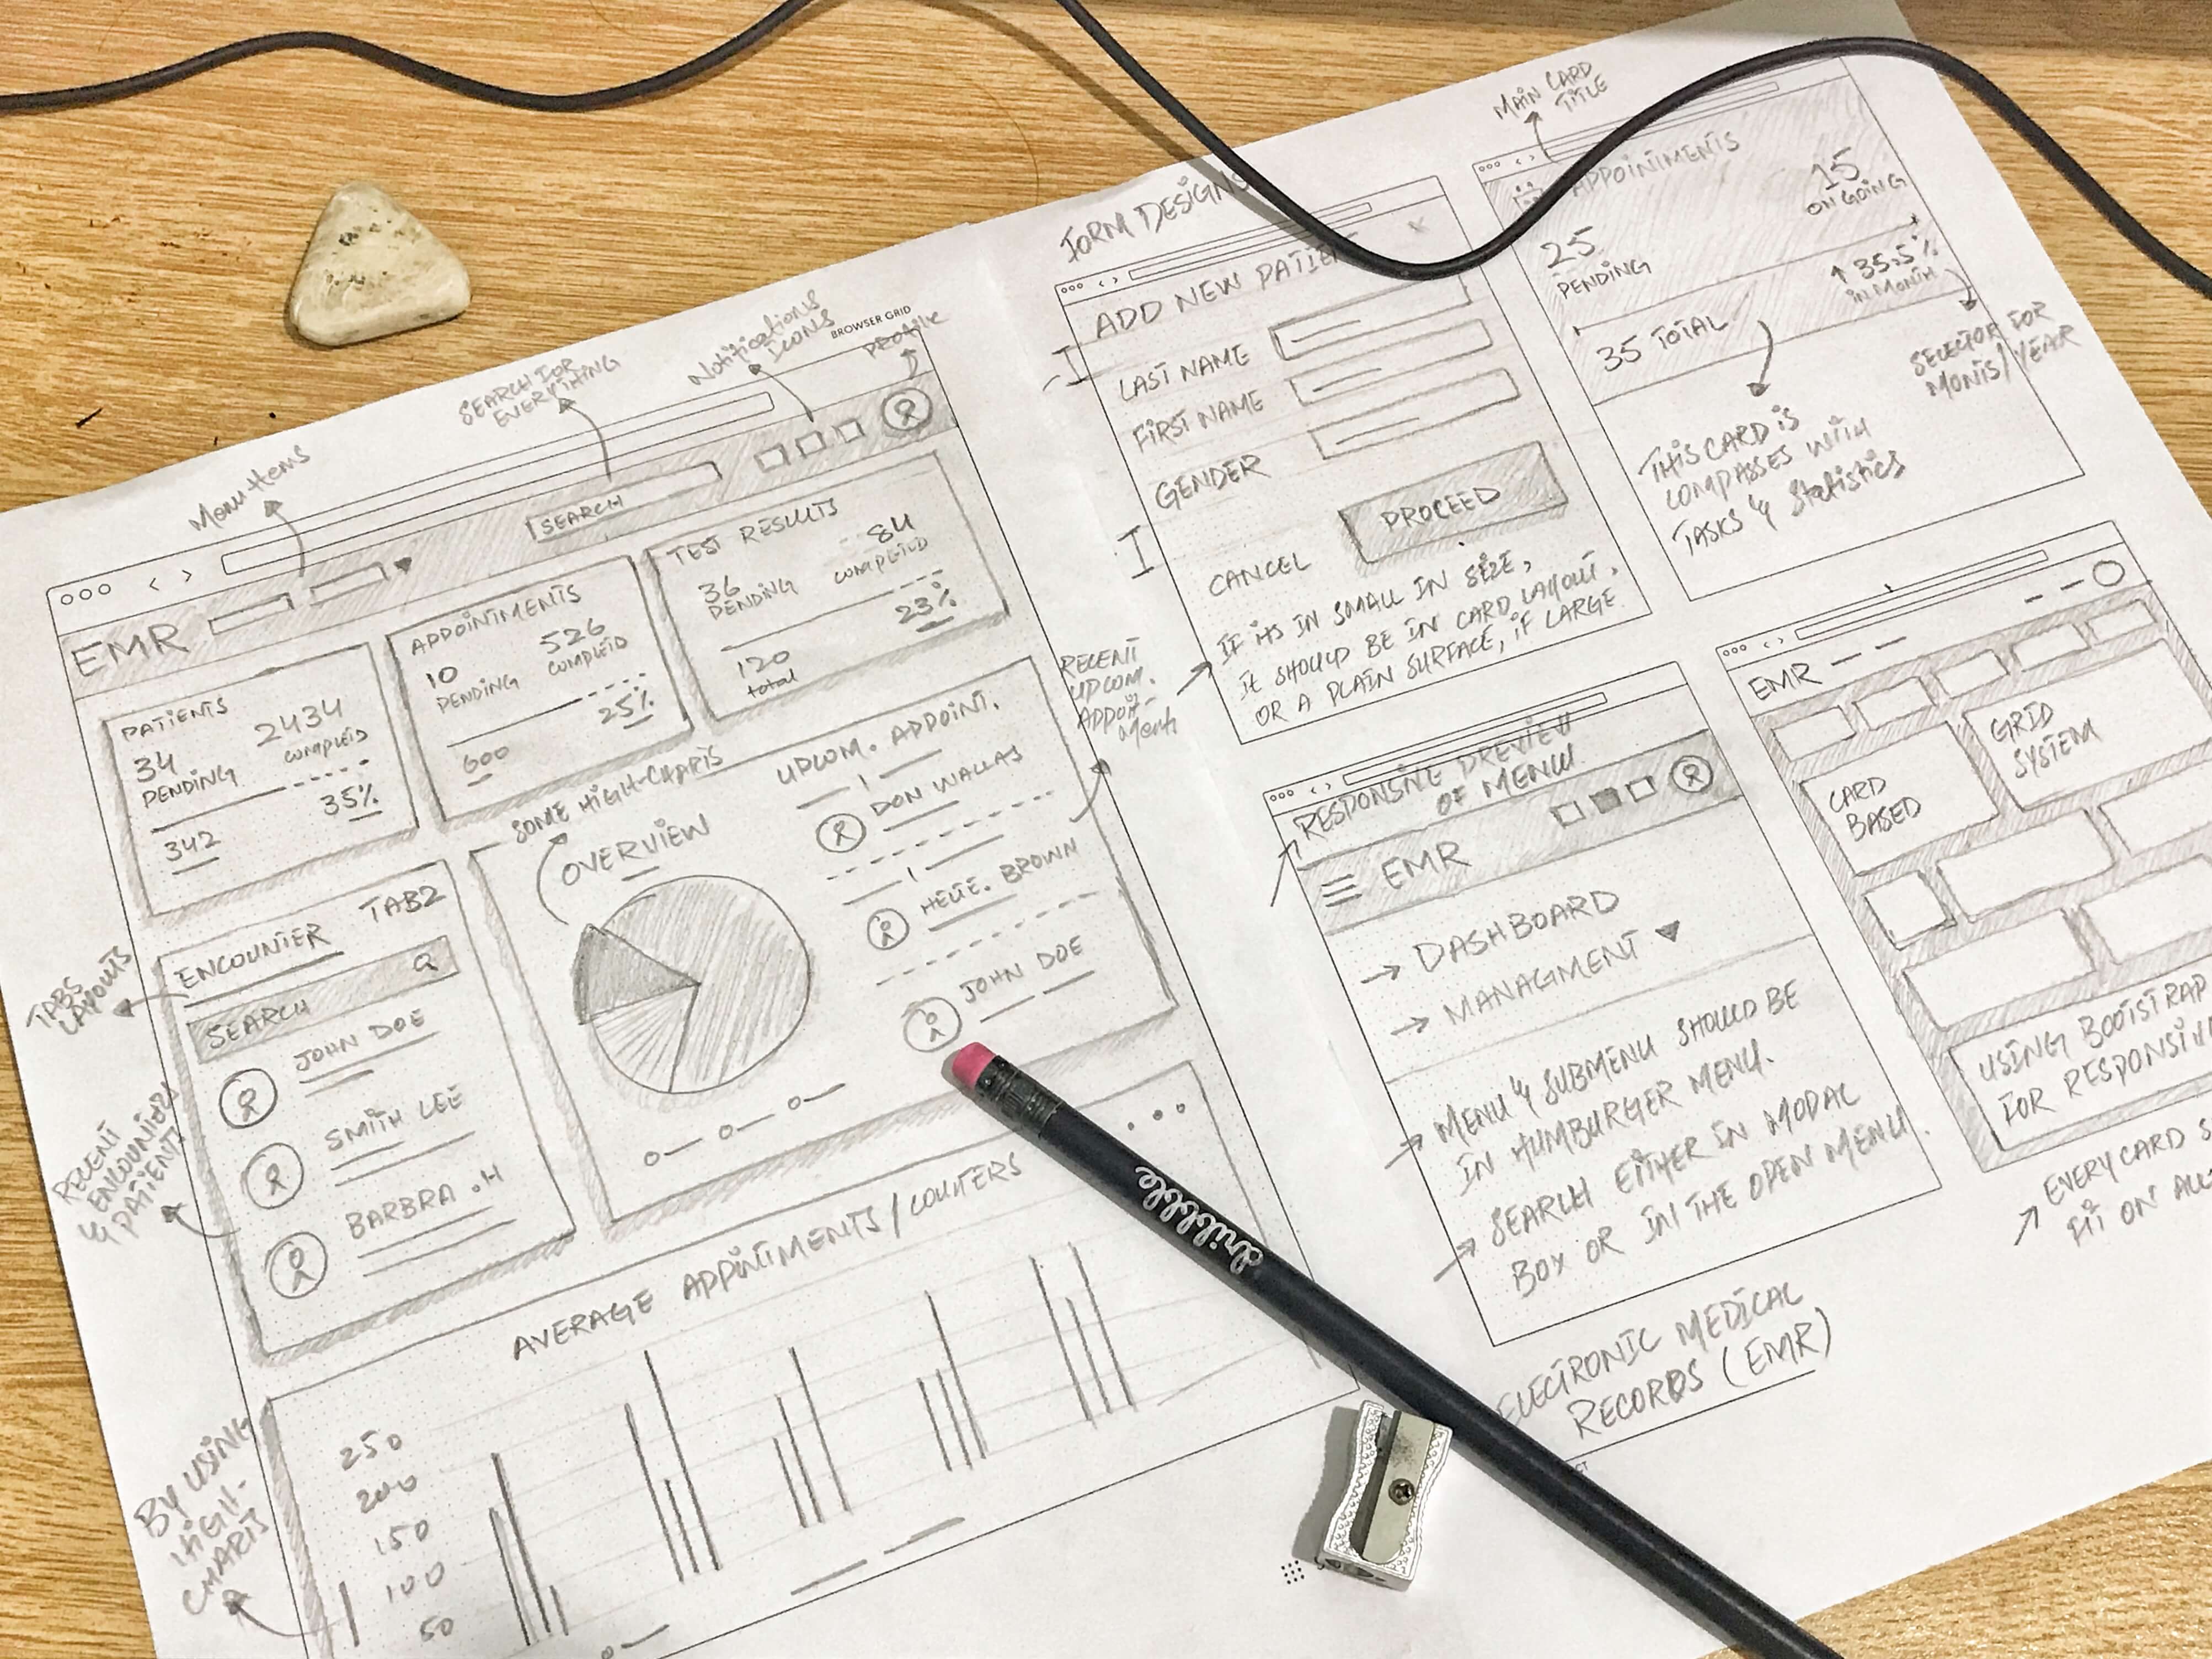 BROWSER GRID
Menu Items
SEARCH FOR
EVERYTHING
Notifications
Icons
Profile
SEARCH
EMR
PATIENTS
34
PENDING
2434
COMPLETD
342
35%
APPOINTMENTS
10
PENDING
526
COMPLETD
600
25%
TEST RESULTS
36
PENDING
84
COMPLETED
120
total
23%
TABS
LAYOUTS
ENCOUNTER
TAB2
SEARCH
JOHN DOE
SMITH LEE
BARBRA .H
RECENT
ENCOUNTERS
& PATIENTS
SOME HIGH-CHARTS
OVERVIEW
UPCOM. APPOINT.
DON WALLAS
HELIE. BROWN
JOHN DOE
RECENT
UPCOM.
APPOIN-
Ments
AVERAGE APPINTMENTS/COUNTERS
250
200
150
100
50
BY USING
HIGH-
CHARTS
FORM DESIGNS
ADD NEW PATIEN
LAST NAME
FIRST NAME
GENDER
CANCEL
PROCEED
IF ITS IN SMALL IN SIZE,
IT SHOULD BE IN CARD LAYOUT.
OR A PLAIN SURFACE, IF LARGE
MAIN CARD
TITLE
APPOINTMENTS
25
PENDING
15
ON GOING
35 TOTAL
↑ 35.5%
IN MONTH
SELECTOR FOR
MONTS/YEAR
THIS CARD IS
COMPASSES WITH
TASKS & Statistics
RESPONSIVE PREVIEW
OF MENU
EMR
→ DASHBOARD
→ MANAGMENT
→ MENU & SUBMENU SHOULD BE
IN HUMBURGER MENU.
→ SEARCH EITHER IN MODAL
BOX OR IN THE OPEN MENU.
EMR
CARD
BASED
GRID
SYSTEM
USING BOOTSTRAP
FOR RESPONSIV
EVERY CARD S
FIT ON ALL
ELECTRONIC MEDICAL
RECORDS (EMR)
dribbble